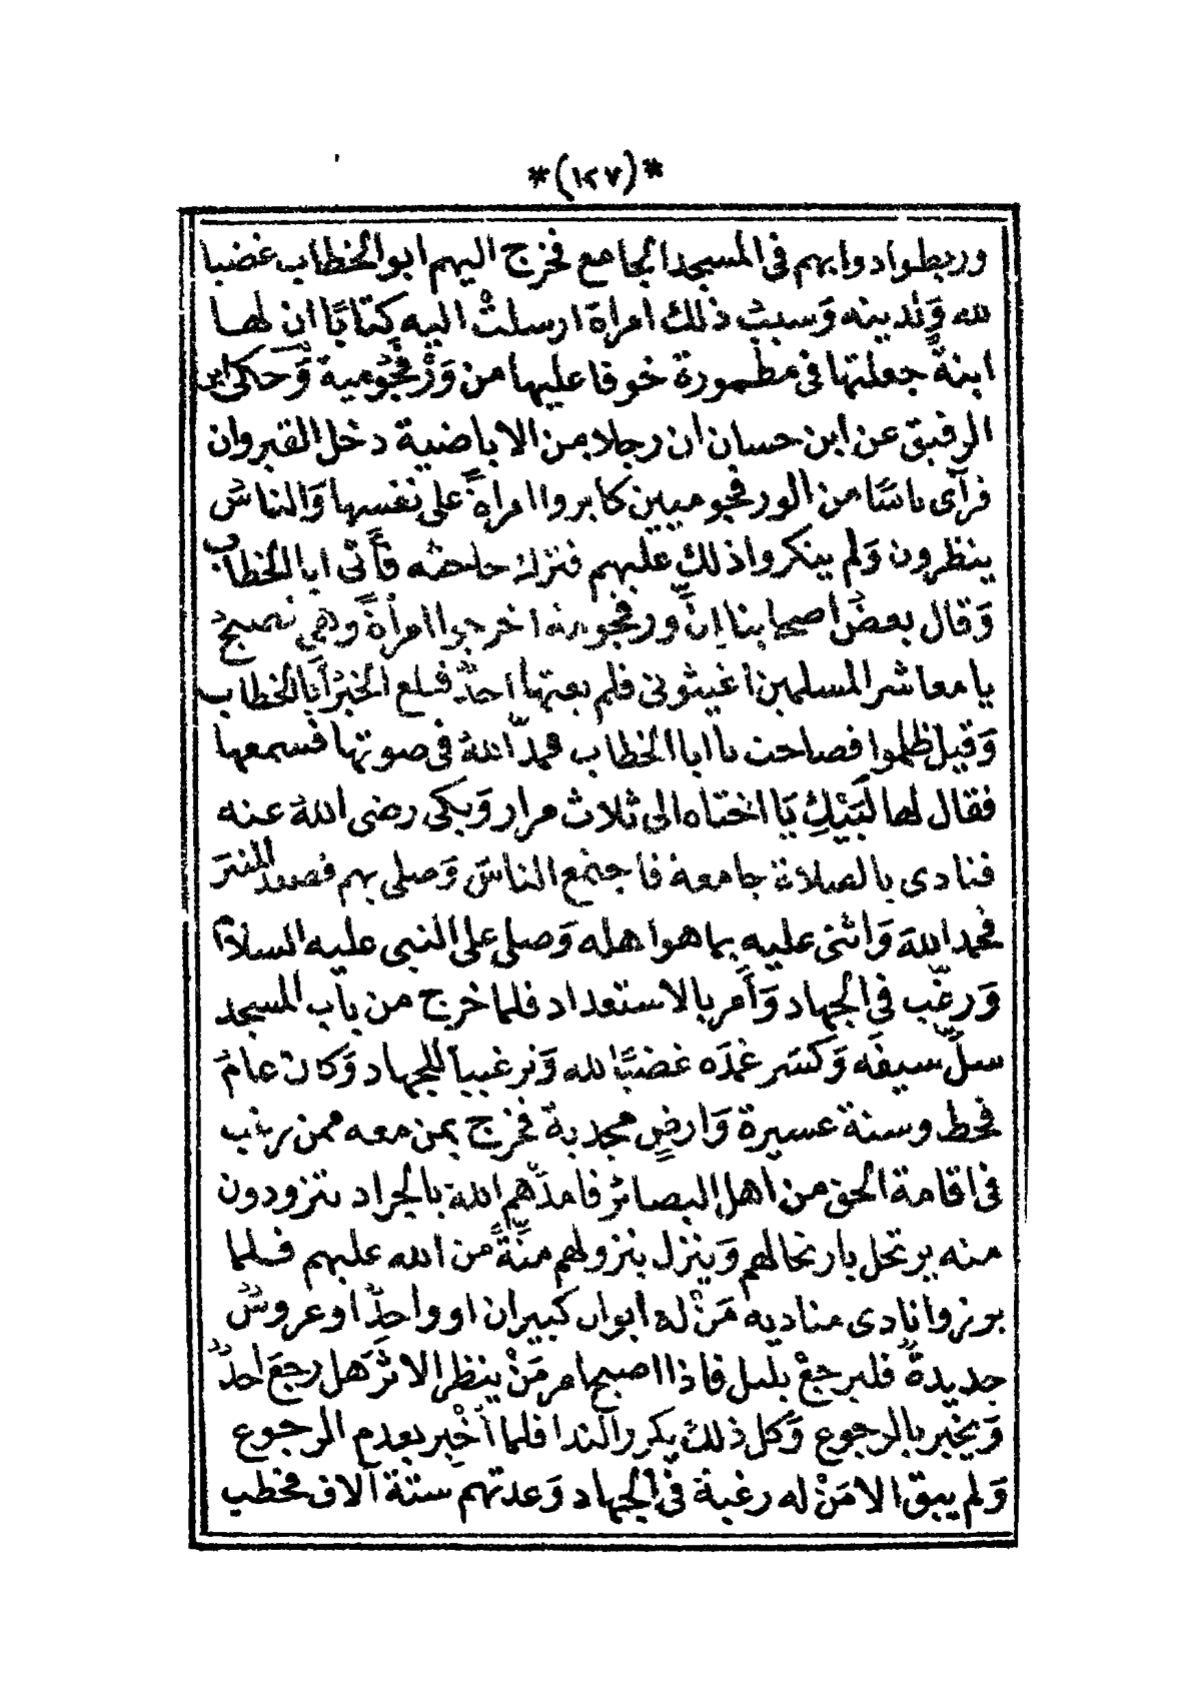 *(١٢٧)*
وربطوا دوابهم فى المسجد الجامع فخرج اليهم ابو الخطاب غضبا
لله وَلدينه وَسبب ذلك امراة ارسلتْ اليه كتابًا ان لهـا
ابنةً جعلتها فى مطمورة خوفا عليها من وَرْفجُومية وَحكى ابن
الرقيق عن ابن حسان ان رجلا من الاباضية دخل القيروان
فرآى ناسًا من الورفجوميين كابروا امراةً على نفسها وَالناس
ينظرون وَلم ينكروا ذلك عليهم فترك حاجته فأتى ابا الخطاب
وَقال بعضُ اصحابنا اِنَّ ورفجومة اخرجوا امرأةً وهى تصيح
يا معاشر المسلمين اغيثونى فلم يغثها احدٌ فبلغ الخبرُ أبا الخطاب
وَقيل ظلموا فصاحت يا ابا الخطاب فمدّ اللهُ فى صوتها فسمعها
فقال لها لَبَيْكِ يَا اختاه الى ثلاث مرار وَبكى رضى اللهُ عنه
فنادى بالصلاة جامعة فاجتمع الناسُ وَصلى بهم فصعد المنبرَ
فحمد اللهَ وَاثنى عليه بما هوا هله وَصلى على النبى عليه السلام
وَرغّب فى الجهاد وَأَمر بالاستعداد فلما خرج من باب المسجد
سلّ سيفَه وَكسَر غمدَه غضبًا لله وَترغيبا للجهاد وَكان عامُ
قحط وسنة عسيرة وَارضٍ مجدبة فخرج بمن معه ممن رغب
فى اقامة الحق من اهل البصائر فامدّهم اللهُ بالجراد يتزودون
منه يرتحل بارتحالهم وَينزل بنزولهم مِنّةً من الله عليهم فـلما
برزوا نادى مناديه مَنْ له ابوان كبيران او واحدٌ او عروسٌ
جديدةٌ فليرجعْ بليل فاذا اصبح امر مَنْ ينظر الاثرَ هل رجع احدٌ
وَيخبر بالرجوع وَكل ذلك يكرر النداء فلما أُخْبر بعدم الرجوع
وَلم يبق الا مَنْ له رغبة فى الجهاد وَعدتهم ستة آلاف فخطب